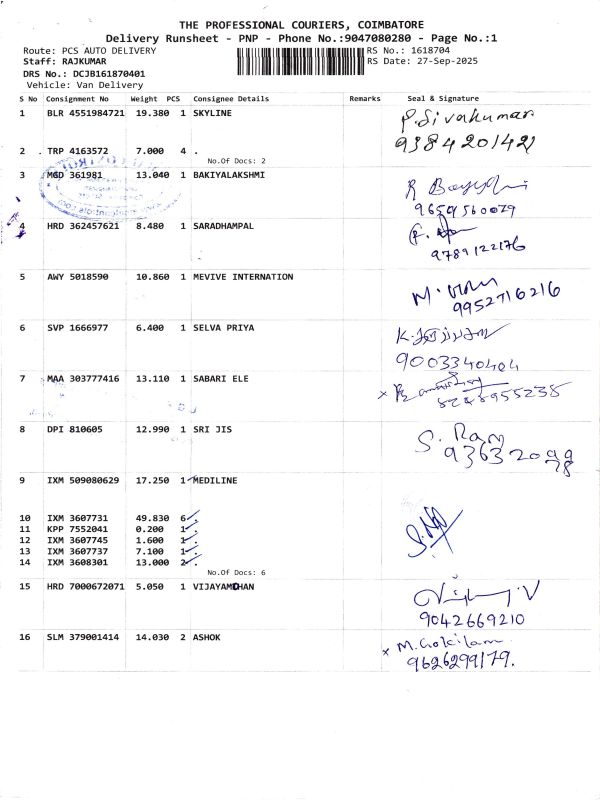 THE PROFESSIONAL COURIERS, COIMBATORE
Delivery Runsheet - PNP - Phone No.:9047080280 - Page No.:1
Route: PCS AUTO DELIVERY RS No.: 1618704
Staff: RAJKUMAR RS Date: 27-Sep-2025
DRS No.: DCJB161870401
Vehicle: Van Delivery
S No Consignment No Weight PCS Consignee Details Remarks Seal & Signature
1 BLR 4551984721 19.380 1 SKYLINE P.Sivakumar
9384201421
2 TRP 4163572 7.000 4 .
No.Of Docs: 2
3 MGD 361981 13.040 1 BAKIYALAKSHMI
9659560029
4 HRD 362457621 8.480 1 SARADHAMPAL
9789122176
5 AWY 5018590 10.860 1 MEVIVE INTERNATION
9952716216
6 SVP 1666977 6.400 1 SELVA PRIYA
9003340404
7 MAA 303777416 13.110 1 SABARI ELE
8 DPI 810605 12.990 1 SRI JIS S. Ram
93632099
78
9 IXM 509080629 17.250 1 MEDILINE
10 IXM 3607731 49.830 6 .
11 KPP 7552041 0.200 1 .
12 IXM 3607745 1.600 1 .
13 IXM 3607737 7.100 1 .
14 IXM 3608301 13.000 2 .
No.Of Docs: 6
15 HRD 7000672071 5.050 1
9042669210
16 SLM 379001414 14.030 2 ASHOK x M.Gokilam
9626299179.